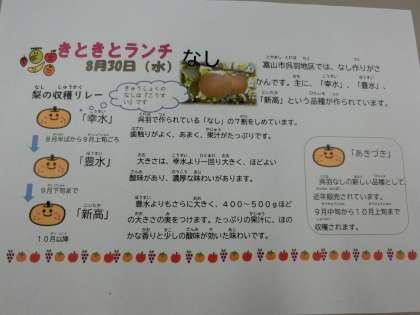 きときとランチ
8月30日（水）
なし
富山市呉羽地区では、なし作りがさ
かんです。主に、「幸水」、「豊水」、
「新高」という品種が作られています。
梨の収穫リレー
きゅうしょくの
なしは「こうす
い」です
「幸水」
8月半ばから9月上旬ごろ
呉羽で作られている「なし」の7割をしめています。
歯触りがよく、あまく、果汁がたっぷりです。
「豊水」
9月下旬まで
大きさは、幸水より一回り大きく、ほどよい
酸味があり、濃厚な味わいがあります。
「新高」
10月以降
豊水よりもさらに大きく、400～500gほど
の大きさの実をつけます。たっぷりの果汁に、ほの
かな香りと少しの酸味が効いた味わいです。
「あきづき」
呉羽なしの新しい品種として、
近年販売されています。
9月中旬から10月上旬まで
収穫されます。